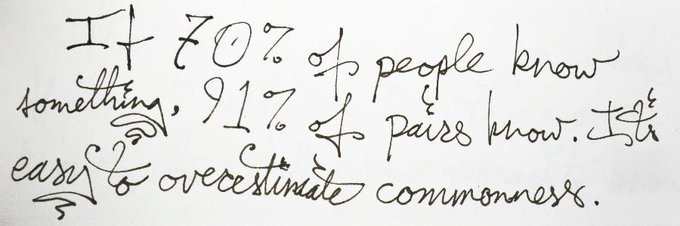 If 70% of people know
something, 91% of pairs know. It's
easy to overestimate commonness.